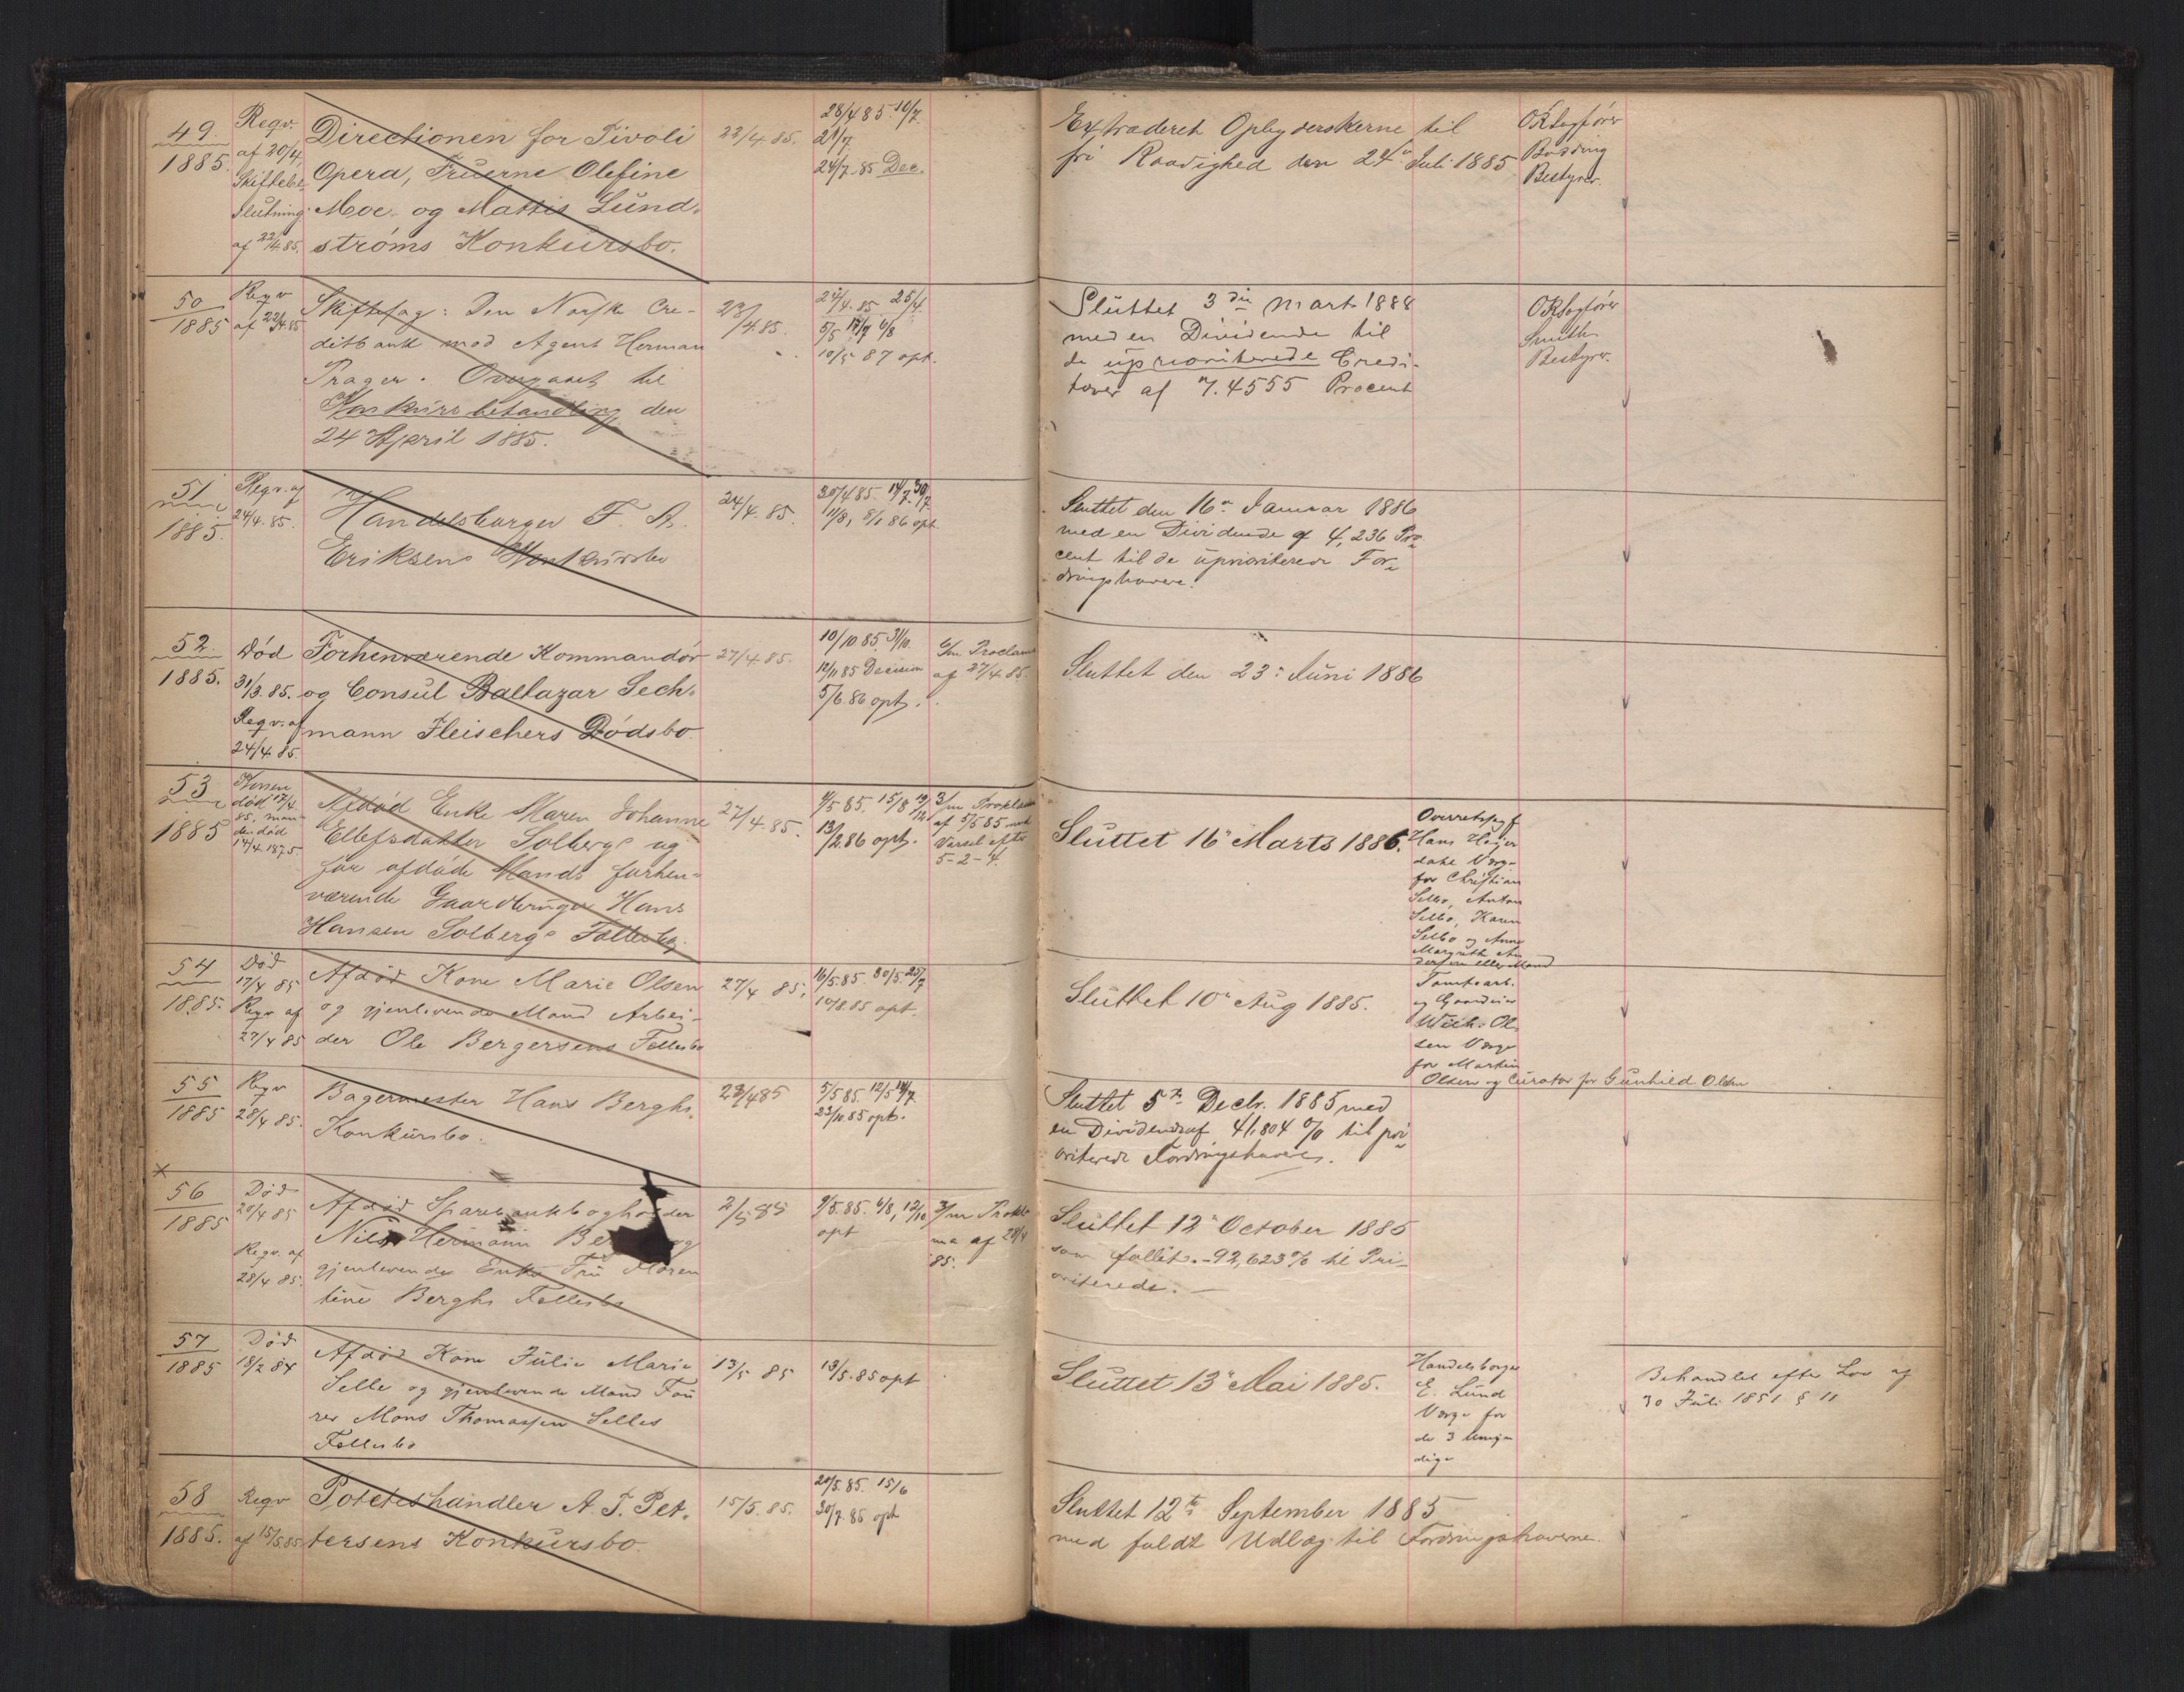 49.
1885.
Reqv.
af 20/4,
Skiftebe
slutning
af 22/4 85.
Directionen for Tivoli
Opera, Fruerne Olefine
Moe og Mattis Lund-
strøms Konkursbo.
23/4. 85.
28/4 85. 10/7.
21/7
24/7. 85 Dec.
Extraderet Opbyderskerne til
fri Raadighed den 24de Juli 1885
ORSagfører
Bødding
Bestyrer.
50
1885
Reqv
af 22/4 85
Skiftesag: Den Norske Cre-
ditbank mod Agent Herman
Prager. Overgaaet til
Konkursbehandling den
24 April 1885.
23/4. 85.
24/4. 85 25/4.
5/5 17/7 6/8
10/5 87 opt.
Sluttet 3die Marts 1888
med en Dividende til
de upprioriterede Credi-
torer af 7.4555 Procent
ORSagfører
Smith
Bestyrer.
51
1885.
Reqv. af
24/4. 85.
Handelsborger F. A.
Eriksens Konkursbo
24/4. 85.
30/4 85. 14/7 30/7
11/8, 8/1 86 opt
Sluttet den 16de Januar 1886
med en Dividende af 4,236 Pro-
cent til de uprioriterede For-
dringshavere.
52.
1885.
Død
31/3. 85.
Reqv. af
24/4 85.
Forhenværende Kommandør
og Consul Baltazar Sech-
mann Fleischers Dødsbo
27/4 85.
10/10 85. 31/10.
12/11 85 Decision
5/6. 86 opt.
6/m Proclama
af 27/4 85.
Sluttet den 23de Juni 1886
53
1885
Konen
død 17/4
85, man-
den død
14/4 1875.
Afdød Enke Maren Johanne
Ellefsdatter Solbergs og
før afdøde Mands forhen-
værende Gaardbruger Hans
Hansen Solbergs Fællesbo.
27/4. 85.
9/5 85. 15/8 19/12
13/2. 86 opt.
3/m Proklama
af 5/5 85 med
Varsel efter
5-2-4.
Sluttet 16de Marts 1886.
Overretssagf
Hans Heyer
dahl Værge
for Christian
Selbo, Anton
Selbo, Karen
Selbo og Anne
Margrethe An
dersen eller Mand
54
1885.
Død
17/4 85
Reqv af
27/4 85
Afdød Kone Marie Olsen
og gjenlevende Mand Arbei-
der Ole Bergersens Fællesbo
27/4 85.
16/5. 85. 30/5. 25/7
10/8. 85 opt.
Sluttet 10de Aug 1885.
Tomtearb.
og Gaardeier
Wilh. Ol-
sen Værge
for Martin
Olsen og Curator for Gunhild Olsen
55
1885
Reqv
28/4 85.
Bagermester Hans Berghs
Konkursbo.
28/4 85
5/5 85. 12/5 14/7
23/10. 85 opt.
Sluttet 5te Decbr. 1885 med
en Dividende af 41.804 % til pri-
oriterede Fordringshavere.
56
1885
Død
20/4 85
Reqv. af
28/4 85.
Afdød Sparebankbogholder
Nils Hermann Be og
gjenlevende Enke Fru Maren
tine Berghs Fællesbo
2/5 85
9/5. 85. 6/8, 12/10
opt
3/m Prokla
ma af 28/4
85.
Sluttet 12te October 1885
som fallit. - 92,623 % til Pri-
oriterede. -
57
1885
Død
18/2 84
Afdød Kone Julie Marie
Selle og gjenlevende Mand Fou
rer Mons Thomassen Selles
Fællesbo
13/5 85
13/5. 85 opt
Sluttet 13de Mai 1885.
Handelsborger
E. Lund
Værge for
de 3 Umyn
dige
Behandlet efter Lov af
30 Juli 1851 § 11
58
1885.
Reqv
af 15/5 85
Poteteshandler A. J. Pet-
tersens Konkursbo.
15/5. 85.
20/5. 85. 15/6
30/7. 85 opt
Sluttet 12te September 1885
med fuldt Udlæg til Fordringshaverne.